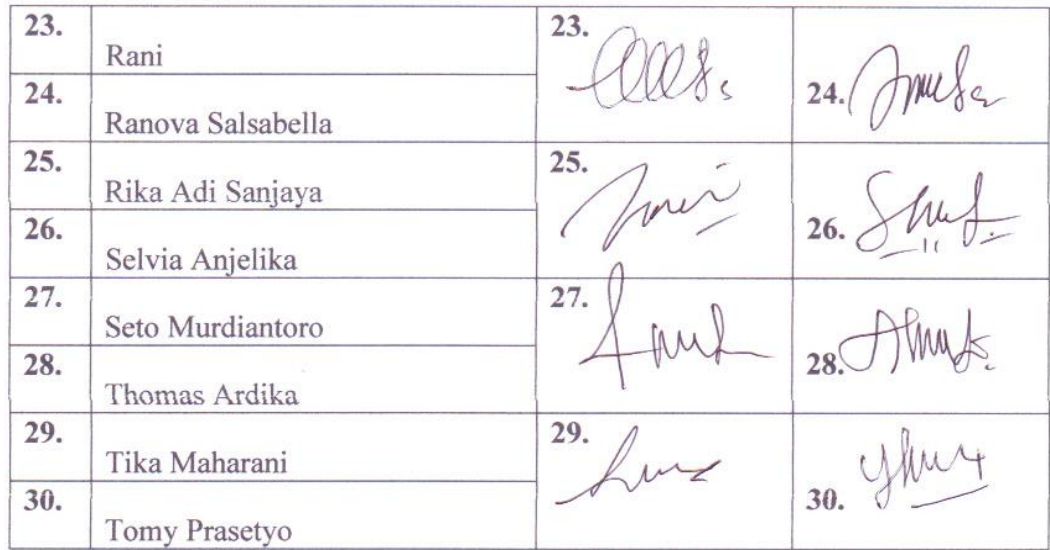 23. Rani 23.
24. Ranova Salsabella 24.
25. Rika Adi Sanjaya 25.
26. Selvia Anjelika 26.
27. Seto Murdiantoro 27.
28. Thomas Ardika 28.
29. Tika Maharani 29.
30. Tomy Prasetyo 30.